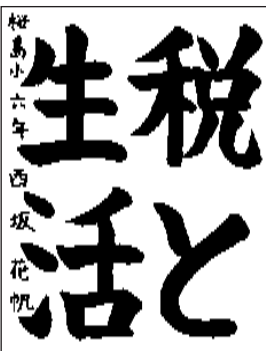 税と
生活
桜島小六年西坂花帆